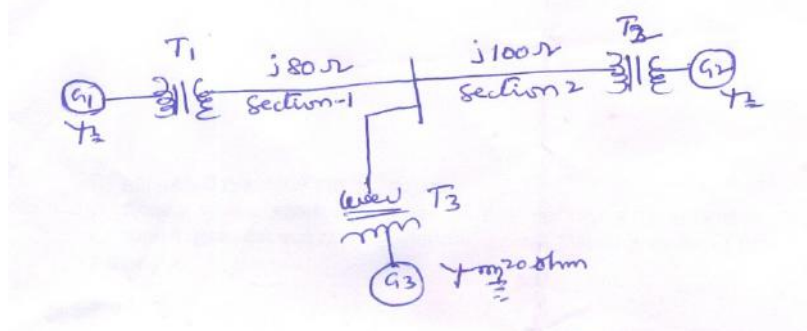 T1
j80Ω
j100Ω
T2
G1
Section-1
Section 2
G2
T3
G3
20 ohm